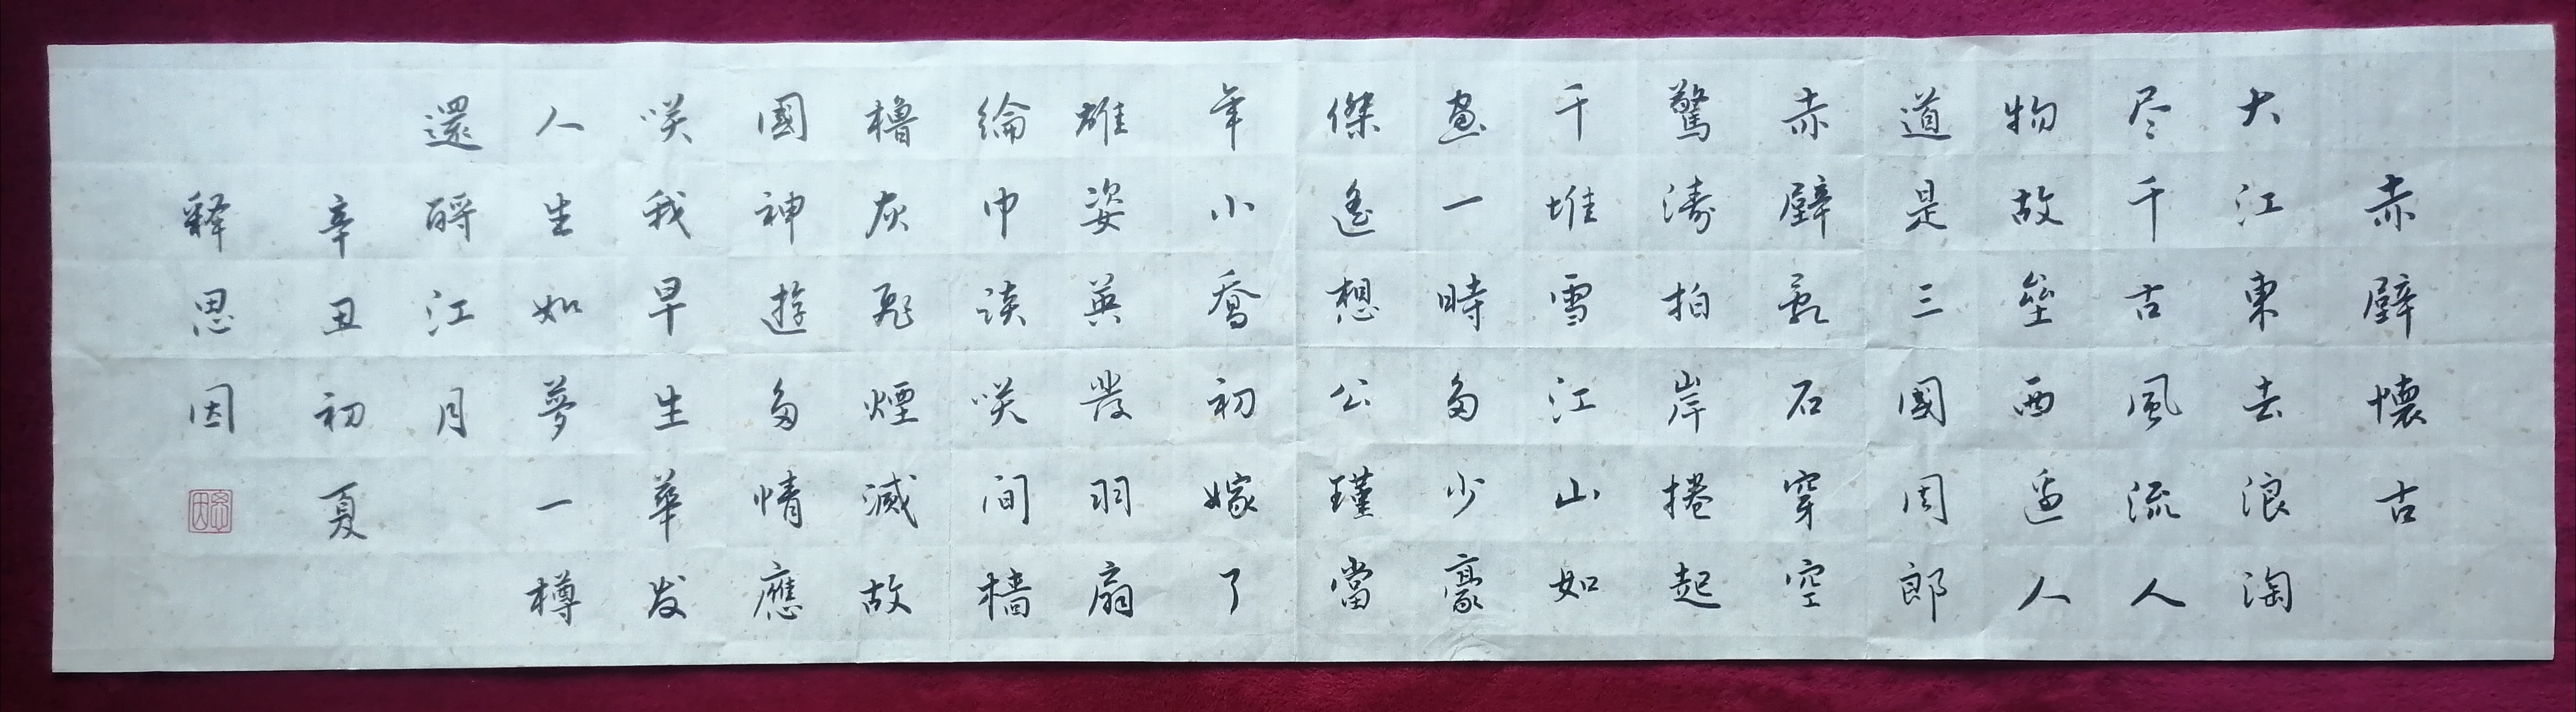 赤壁懷古
大江東去浪淘
尽千古風流人
物故壘西邊人
道是三國周郎
赤壁亂石穿空
驚濤拍岸捲起
千堆雪江山如
畫一時多少豪
傑遙想公瑾當
年小喬初嫁了
雄姿英發羽扇
綸巾談咲间檣
櫓灰飛煙滅故
國神遊多情應
咲我早生華发
人生如夢一樽
還酹江月
辛丑初夏
釋思因
思因